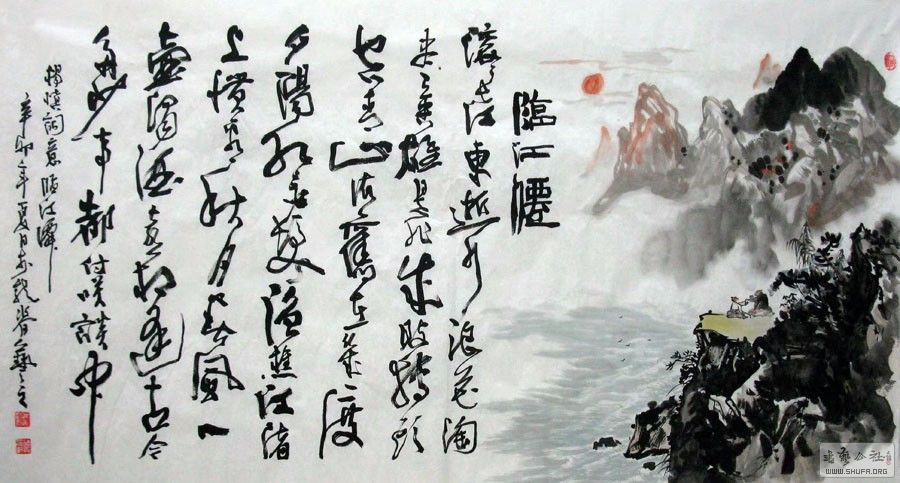 臨江僊
滚滚长江東逝水浪花淘
尽英雄是非成敗转头
空青山依舊在幾度
夕陽红白髮渔樵江渚
上惯看秋月春風一
壶濁酒喜相逢古今
多少事都付笑談中
楊慎詞意臨江
辛卯年夏月
公社
WWW.SHUFA.ORG